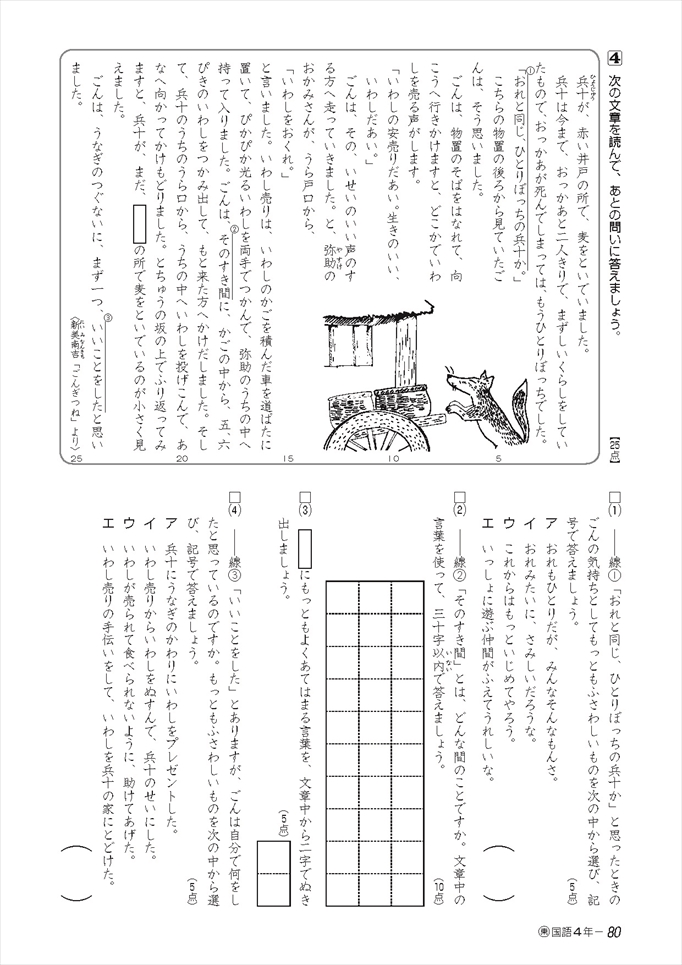 4 次の文章を読んで、あとの問いに答えましょう。 【25点】
兵十が、赤い井戸の所で、麦をといでいました。
ひょうじゅう
兵十は今まで、おっかあと二人きりで、まずしいくらしをしてい
たもので、おっかあが死んでしまっては、もうひとりぼっちでした。
①
「おれと同じ、ひとりぼっちの兵十か。」
こちらの物置の後ろから見ていたご
んは、そう思いました。
ごんは、物置のそばをはなれて、向
こうへ行きかけますと、どこかでいわ
しを売る声がします。
「いわしの安売りだあい。生きのいい、
いわしだあい。」
ごんは、その、いせいのいい声のす
る方へ走っていきました。と、弥助の
やすけ
おかみさんが、うら戸口から、
「いわしをおくれ。」
と言いました。いわし売りは、いわしのかごを積んだ車を道ばたに
置いて、ぴかぴか光るいわしを両手でつかんで、弥助のうちの中へ
持って入りました。ごんは、そのすき間に、かごの中から、五、六
②
ぴきのいわしをつかみ出して、もと来た方へかけだしました。そし
て、兵十のうちのうら口から、うちの中へいわしを投げこんで、あ
なへ向かってかけもどりました。とちゅうの坂の上でふり返ってみ
ますと、兵十が、まだ、□の所で麦をといでいるのが小さく見
えました。
ごんは、うなぎのつぐないに、まず一つ、いいことをしたと思い
③
ました。
〈新美南吉「ごんぎつね」より〉
にいみなんきち
5
10
15
20
25
□(1) ――線①「おれと同じ、ひとりぼっちの兵十か」と思ったときの
ごんの気持ちとしてもっともふさわしいものを次の中から選び、記
号で答えましょう。 (5点)
ア おれもひとりだが、みんなそんなもんさ。
イ おれみたいに、さみしいだろうな。
ウ これからはもっといじめてやろう。
エ いっしょに遊ぶ仲間がふえてうれしいな。
( )
□(2) ――線②「そのすき間」とは、どんな間のことですか。文章中の
言葉を使って、三十字以内で答えましょう。 (10点)
いない
□(3) □にもっともよくあてはまる言葉を、文章中から二字でぬき
出しましょう。 (5点)
□(4) ――線③「いいことをした」とありますが、ごんは自分で何をし
たと思っているのですか。もっともふさわしいものを次の中から選
び、記号で答えましょう。 (5点)
ア 兵十にうなぎのかわりにいわしをプレゼントした。
イ いわし売りからいわしをぬすんで、兵十のせいにした。
ウ いわしが売られて食べられないように、助けてあげた。
エ いわし売りの手伝いをして、いわしを兵十の家にとどけた。
( )
東 国語4年－80